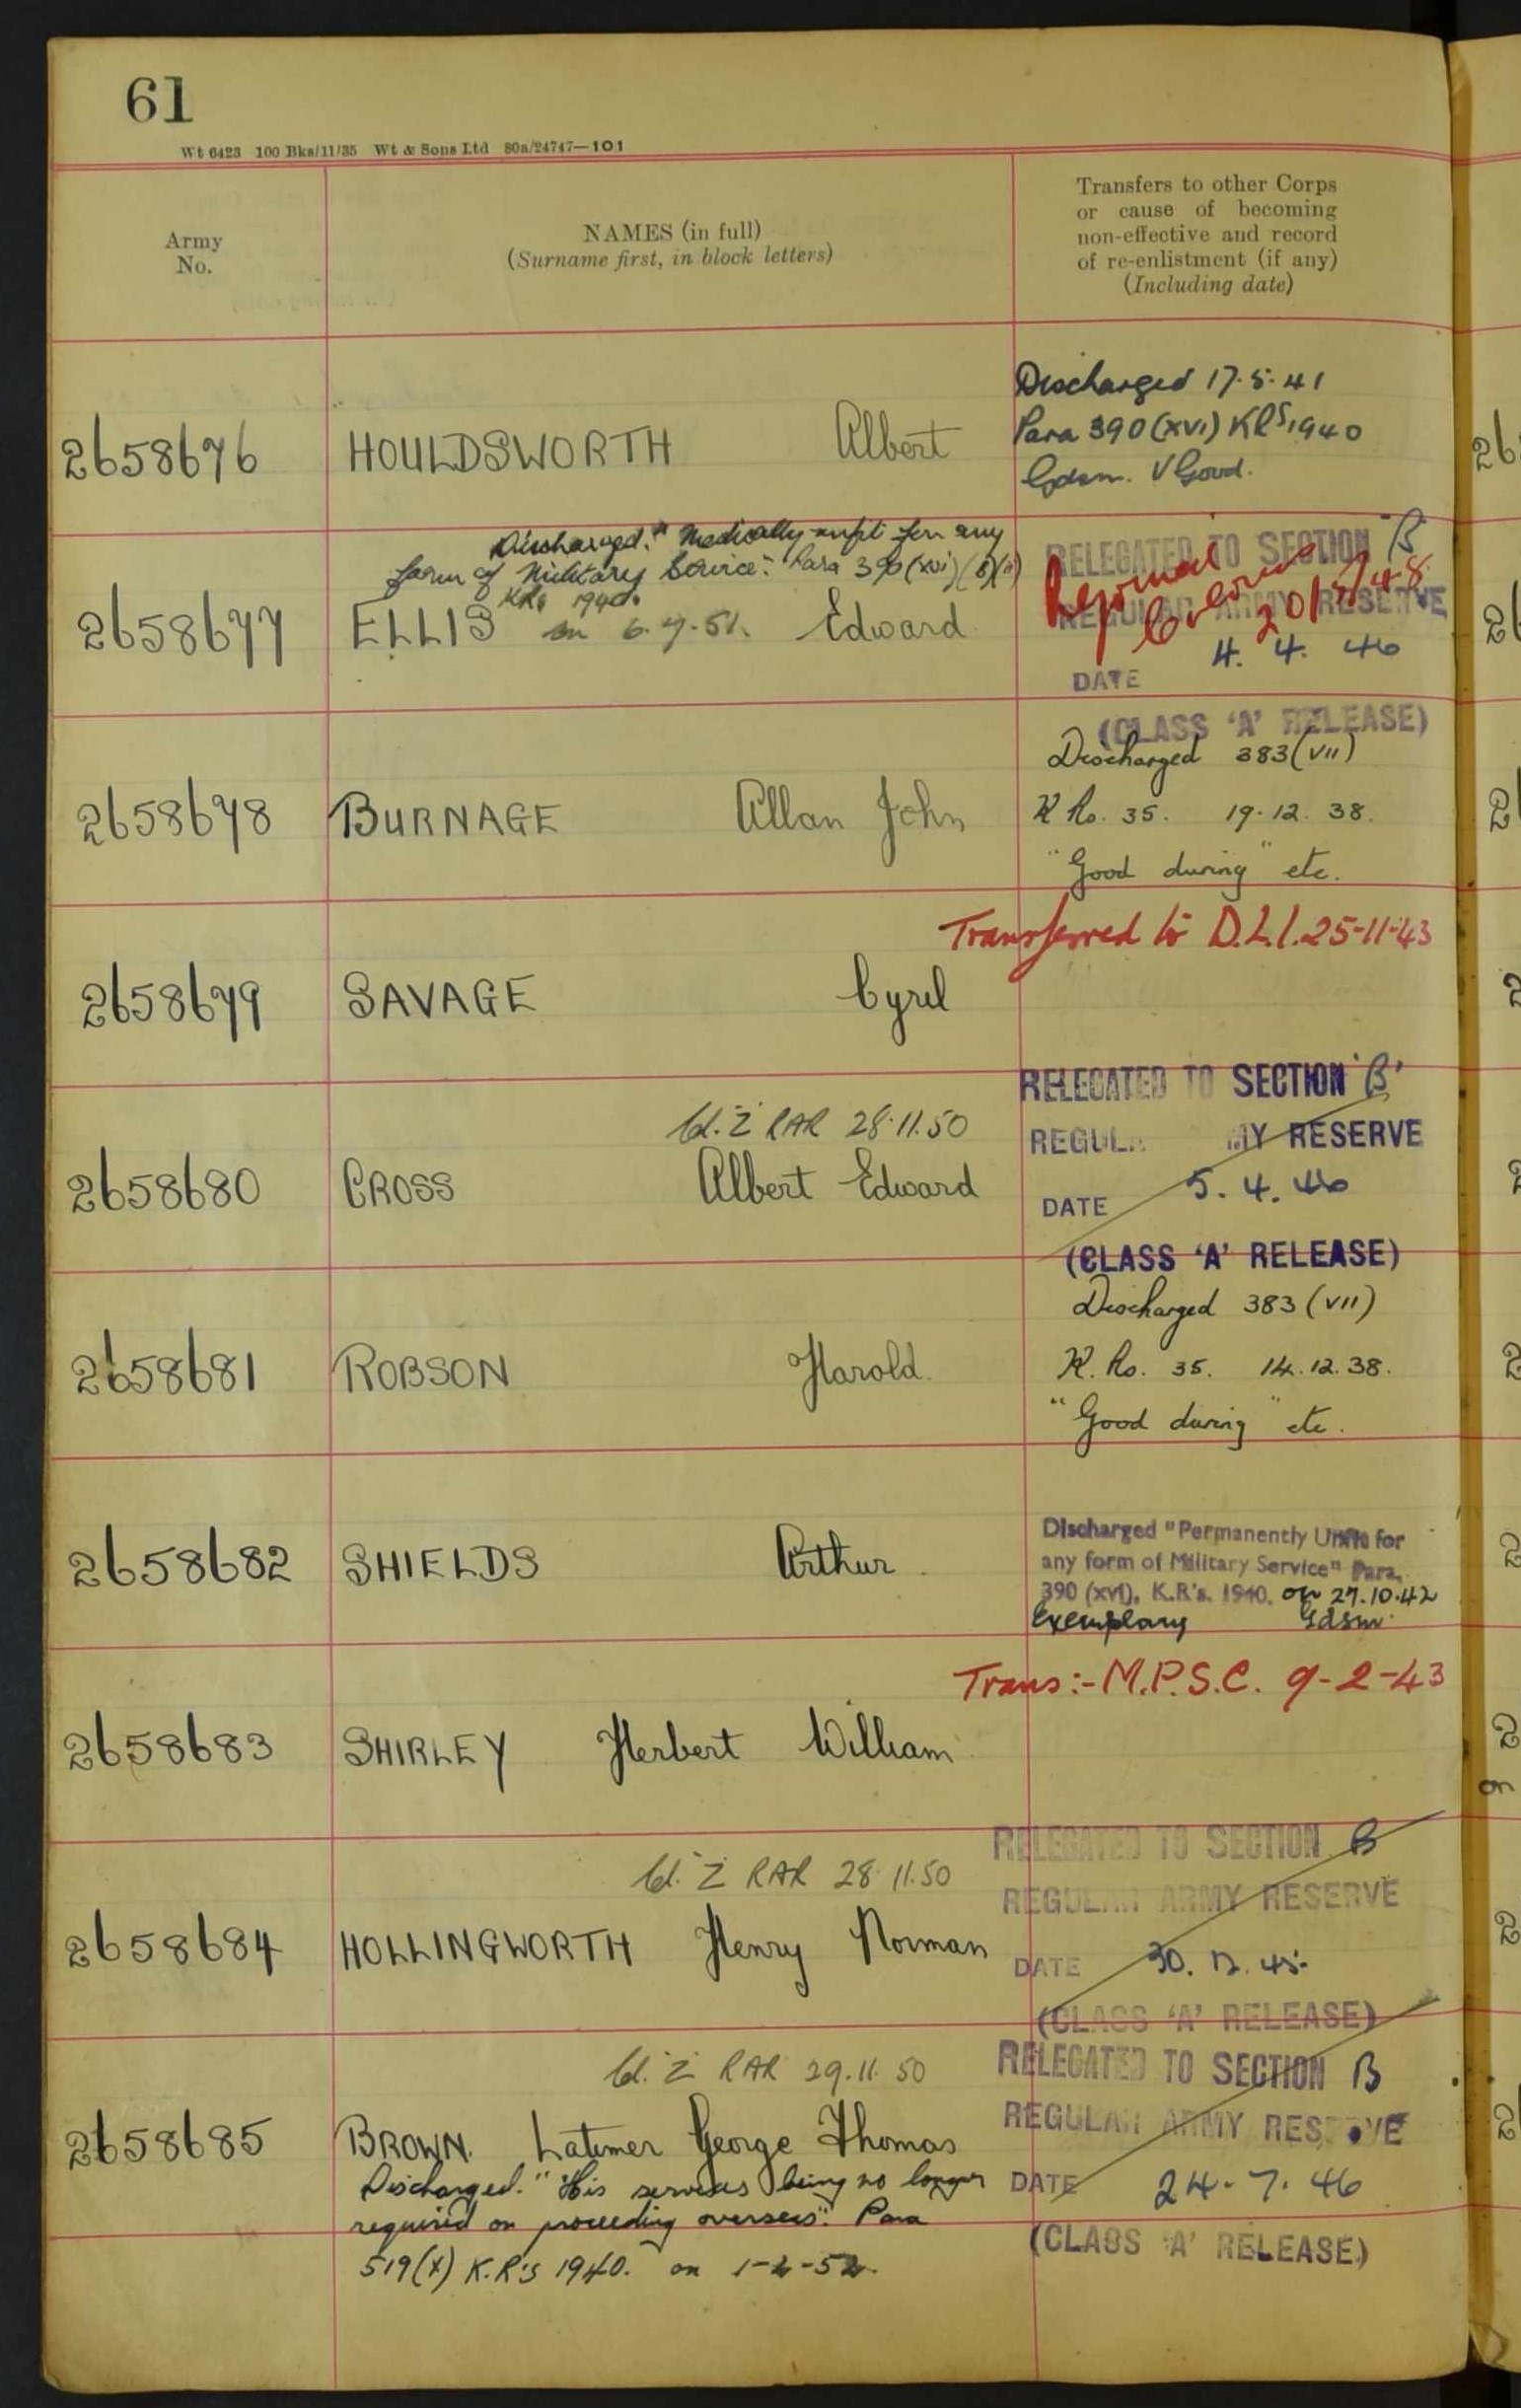 61
Wt 6423 100 Bks/11/35 Wt & Sons Ltd 80a/24747—101
Army
No.
NAMES (in full)
(Surname first, in block letters)
Transfers to other Corps
or cause of becoming
non-effective and record
of re-enlistment (if any)
(Including date)
2658676 HOULDSWORTH Albert
Discharged 17.5.41
Para 390 (XVI) KRs 1940
Gdsm. V Good.
Discharged. "Medically unfit for any
form of Military Service". Para 390 (xvi)
KRs 1940.
2658677 ELLIS on 6.7.51. Edward
RELEGATED TO SECTION 'B'
REGULAR ARMY RESERVE
DATE 4. 4. 46
(CLASS 'A' RELEASE)
Rejoined Colours 20/5/48
2658678 BURNAGE Allan John
Discharged 383 (VII)
K Rs. 35. 19.12.38.
"Good during" etc.
2658679 SAVAGE Cyril
Transferred to D.L.I. 25-11-43
Cl. 'Z' RAR 28.11.50
2658680 CROSS Albert Edward
RELEGATED TO SECTION 'B'
REGULAR ARMY RESERVE
DATE 5. 4. 46
(CLASS 'A' RELEASE)
2658681 ROBSON Harold.
Discharged 383 (VII)
K. Rs. 35. 14.12.38.
"Good during" etc.
2658682 SHIELDS Arthur.
Discharged "Permanently Unfit for
any form of Military Service" Para.
390 (xvi), K.R's. 1940. on 27.10.42
Exemplary Gdsm.
2658683 SHIRLEY Herbert William
Trans:- M.P.S.C. 9-2-43
Cl. 'Z' RAR 28.11.50
2658684 HOLLINGWORTH Henry Norman
RELEGATED TO SECTION B
REGULAR ARMY RESERVE
DATE 30. 12. 45.
(CLASS 'A' RELEASE)
Cl. 'Z' RAR 29.11.50
2658685 BROWN. Latimer George Thomas
Discharged. "His services being no longer
required on proceeding overseas". Para
519 (X) K.R's 1940. on 1-2-52.
RELEGATED TO SECTION B
REGULAR ARMY RESERVE
DATE 24.7.46
(CLASS 'A' RELEASE)